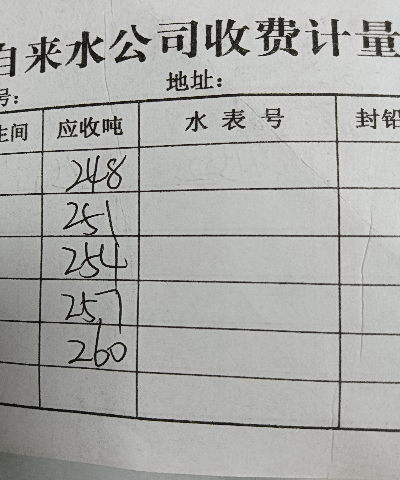 自来水公司收费计量
号: 地址:
生间 应收吨 水表号 封铅
248
251
254
257
260